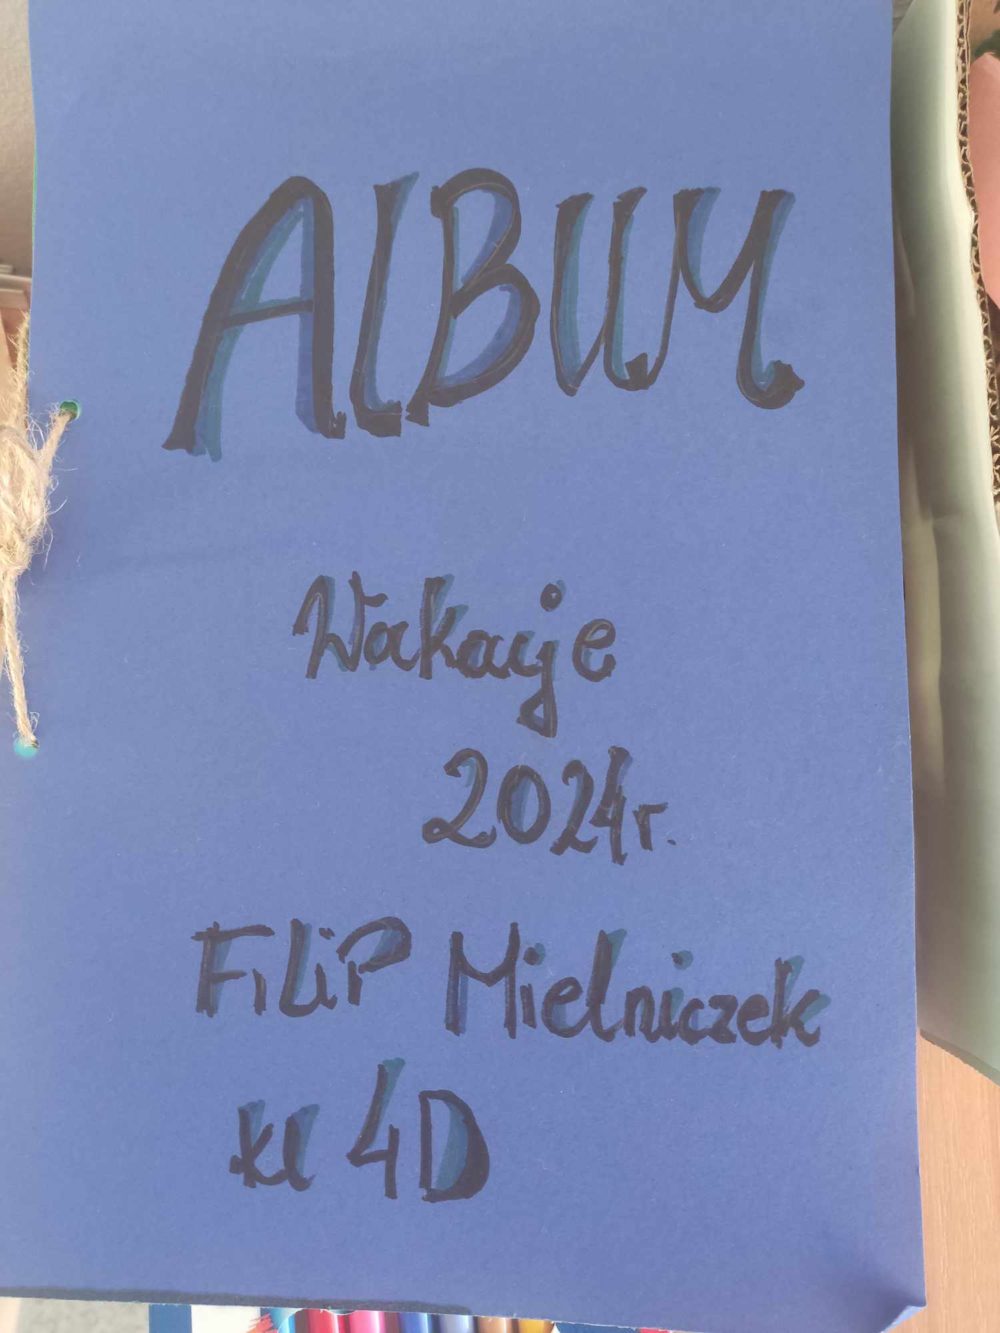 ALBUM
Wakacje
2024r.
FiLiP Mielniczek
kl 4D